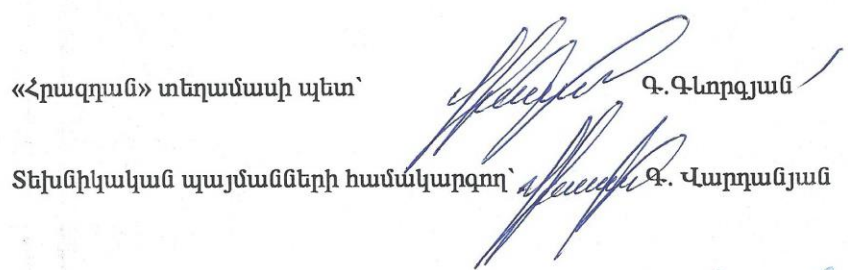 «Հրազդան» տեղամասի պետ՝ Գ.Գևորգյան
Տեխնիկական պայմանների համակարգող՝ Գ. Վարդանյան